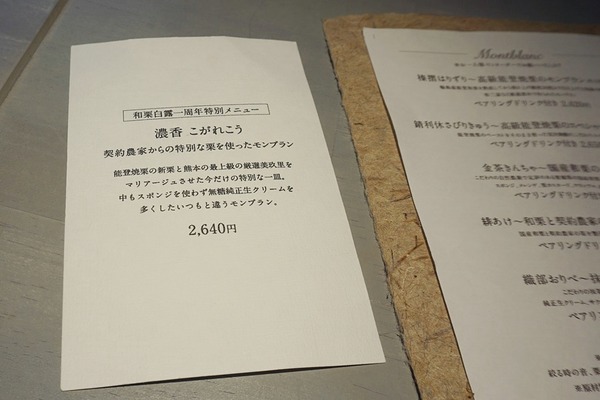 和栗白露一周年特別メニュー
濃香 こがれこう
契約農家からの特別な栗を使ったモンブラン
能登焼栗の新栗と熊本の最上級の厳選美玖里を
マリアージュさせた今だけの特別な一皿。
中もスポンジを使わず無糖純正生クリームを
多くしたいつもと違うモンブラン。
2,640円
Montblanc
榛摺はりずり～高級能登焼栗のモンブラン
ペアリングドリンク付き
錆利休さびりきゅう～高級能登焼栗のスペシャ
ペアリングドリンク付き
金茶きんちゃ～国産和栗の
ペアリングドリンク付き
緋あけ～和栗と契約農家の
国産和栗と契約農家の
ペアリングド
織部おりべ～抹
こだわりの抹茶
純正生クリーム、サク
ペアリン
絞る時の音、栗
※原材